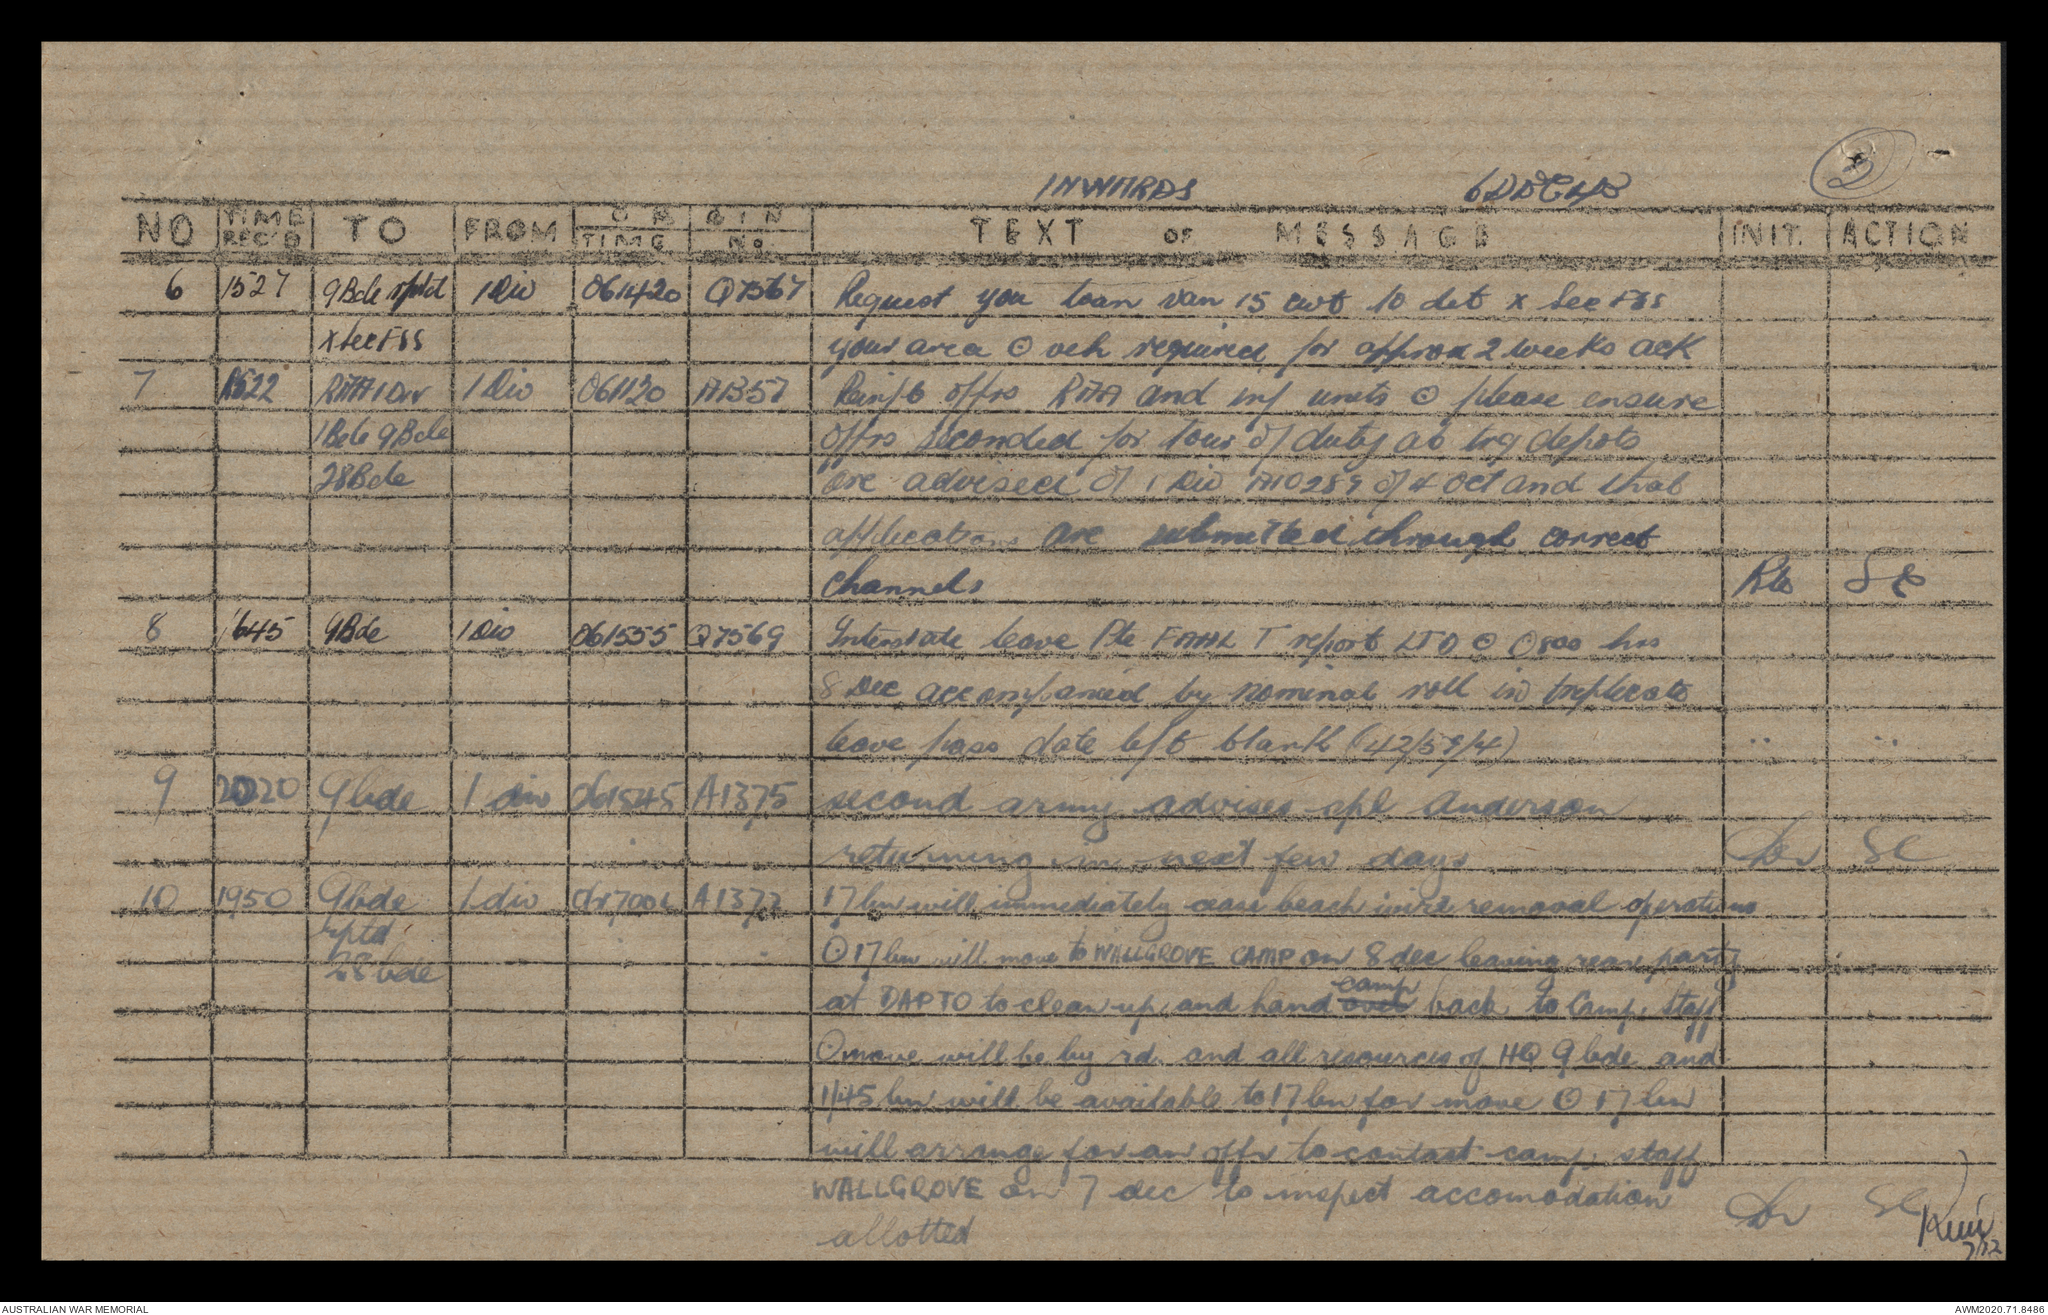 3
INWARDS 6 DEC 43
NO TIME REC'D TO FROM ORIGIN TIME No TEXT OF MESSAGE INIT. ACTION
6 1527 9Bde rptd 1 Div 061420 Q7567 Request you loan van 15 cwt to det x Sec FSS
x Sec FSS your area ⊙ veh required for approx 2 weeks ack
7 1522 RAA 1 Div 1 Div 061120 A1357 Reinft offrs RAA and inf units ⊙ please ensure
1Bde 9Bde offrs seconded for tour of duty at trg depots
28Bde are advised of 1 Div A10289 of 4 Oct and that
applications are submitted through correct
channels
8 1645 9Bde 1 Div 061555 Q7569 Interstate leave Pte T report LTO ⊙ 0800 hrs
8 Dec accompanied by nominal roll in triplicate
leave pass date left blank (42/59/4) " "
9 2020 9 bde 1 div 061545 A1375 second army advises spl Anderson
returning in next few days SC
10 1950 9 bde 1 div A1377 17 bn will immediately cease beach wire removal operations
rptd
28 bde ⊙ 17 bn will move to WALLGROVE CAMP on 8 dec leaving rear party
at DAPTO to clean up and hand over camp back to Camp Staff
⊙ move will be by rd and all resources of HQ 9 bde and
1/45 bn will be available to 17 bn for move ⊙ 17 bn
will arrange for an offr to contact camp staff
WALLGROVE on 7 dec to inspect accomodation
allotted SC
7/12
AUSTRALIAN WAR MEMORIAL AWM2020.71.8486